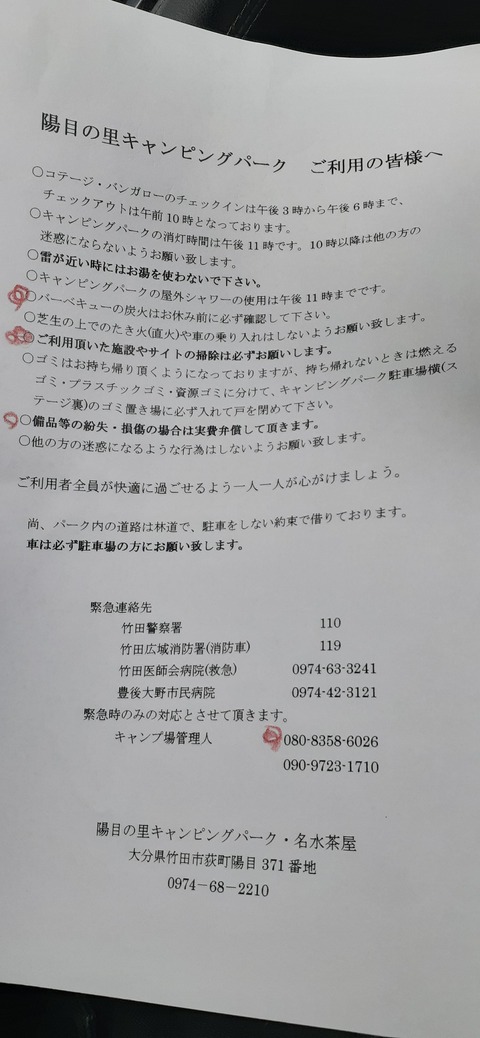 陽目の里キャンピングパーク　ご利用の皆様へ
○コテージ・バンガローのチェックインは午後3時から午後6時まで、
チェックアウトは午前10時となっております。
○キャンピングパークの消灯時間は午後11時です。10時以降は他の方の
迷惑にならないようお願い致します。
○雷が近い時にはお湯を使わないで下さい。
○キャンピングパークの屋外シャワーの使用は午後11時までです。
○バーベキューの炭火はお休み前に必ず確認して下さい。
○芝生の上でのたき火(直火)や車の乗り入れはしないようお願い致します。
○ご利用頂いた施設やサイトの掃除は必ずお願いします。
○ゴミはお持ち帰り頂くようになっておりますが、持ち帰れないときは燃える
ゴミ・プラスチックゴミ・資源ゴミに分けて、キャンピングパーク駐車場横(ス
テージ裏)のゴミ置き場に必ず入れて戸を閉めて下さい。
○備品等の紛失・損傷の場合は実費弁償して頂きます。
○他の方の迷惑になるような行為はしないようお願い致します。
ご利用者全員が快適に過ごせるよう一人一人が心がけましょう。
尚、パーク内の道路は林道で、駐車をしない約束で借りております。
車は必ず駐車場の方にお願い致します。
緊急連絡先
竹田警察署 110
竹田広域消防署(消防車) 119
竹田医師会病院(救急) 0974-63-3241
豊後大野市民病院 0974-42-3121
緊急時のみの対応とさせて頂きます。
キャンプ場管理人 080-8358-6026
090-9723-1710
陽目の里キャンピングパーク・名水茶屋
大分県竹田市荻町陽目371番地
0974－68－2210